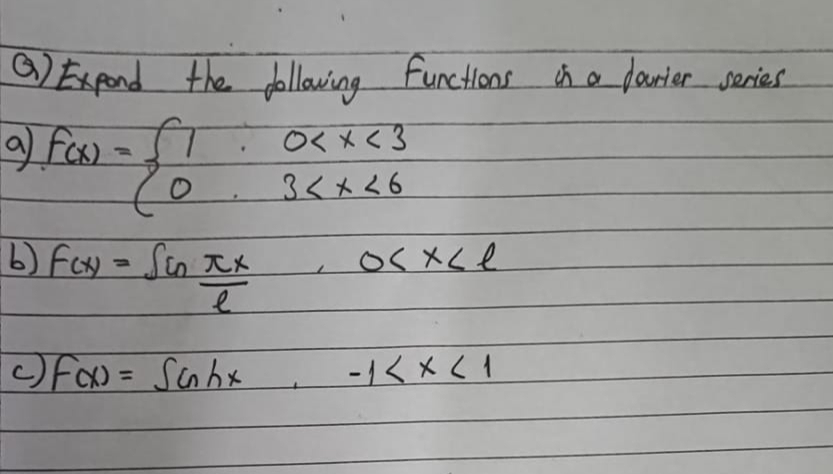 Q) Expand the following Functions in a fourier series
a) F(x) = { 1 . 0 < x < 3
0 . 3 < x < 6
b) F(x) = Sin πx/l , 0 < x < l
c) F(x) = Sinhx , -1 < x < 1